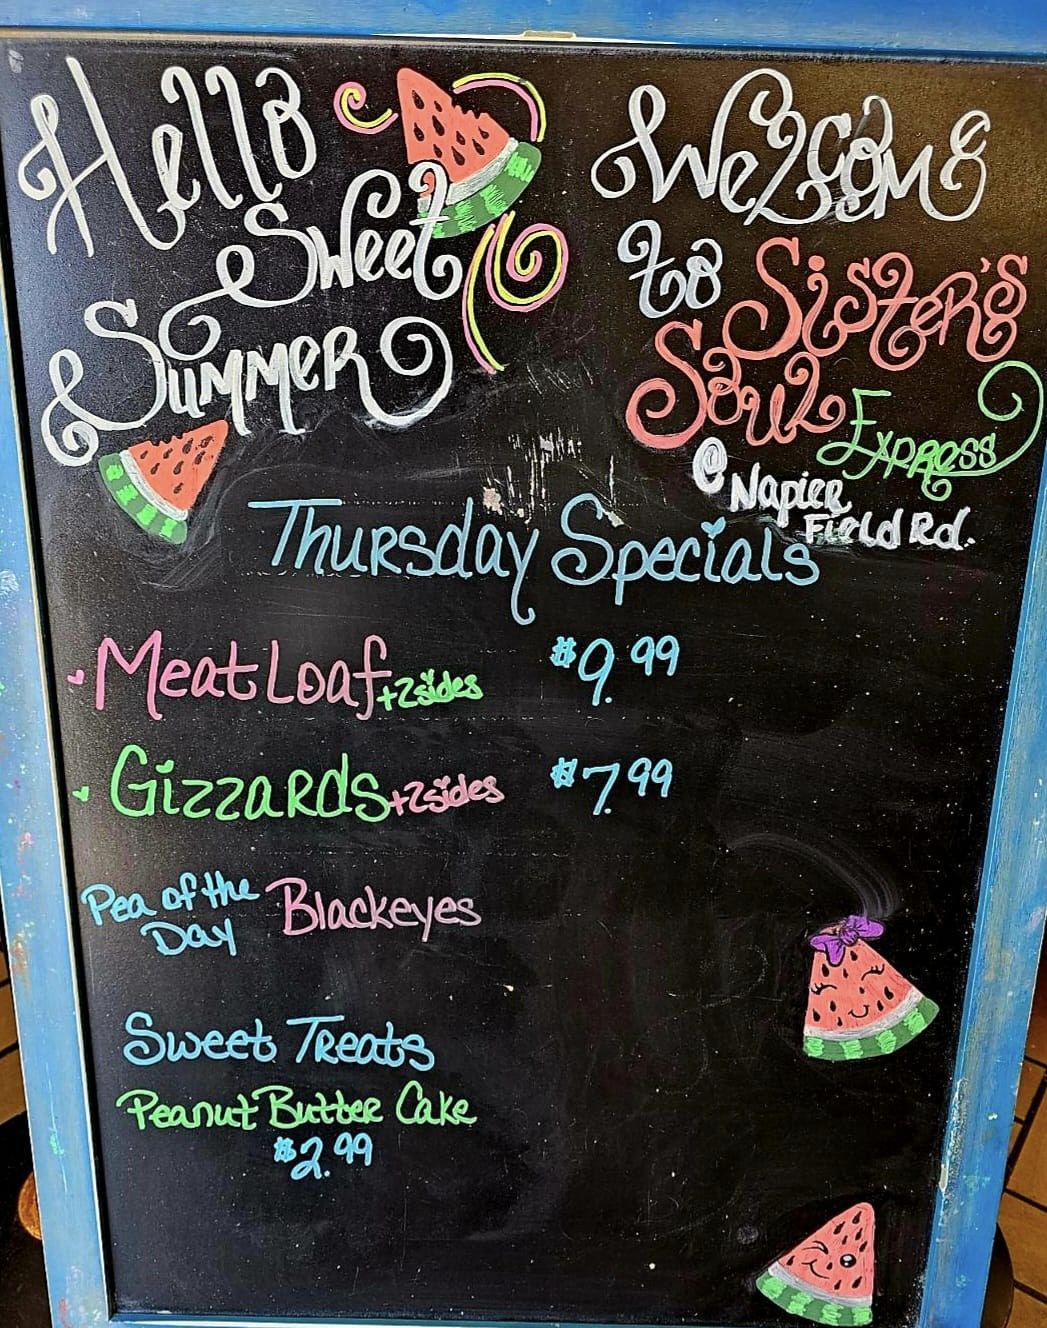 Hello
Sweet
Summer
Welcome
to Sister's
Soul Express
@ Napier
Field Rd.
Thursday Specials
Meat Loaf +2 sides $9.99
Gizzards +2 sides $7.99
Pea of the
Day Blackeyes
Sweet Treats
Peanut Butter Cake
$2.99